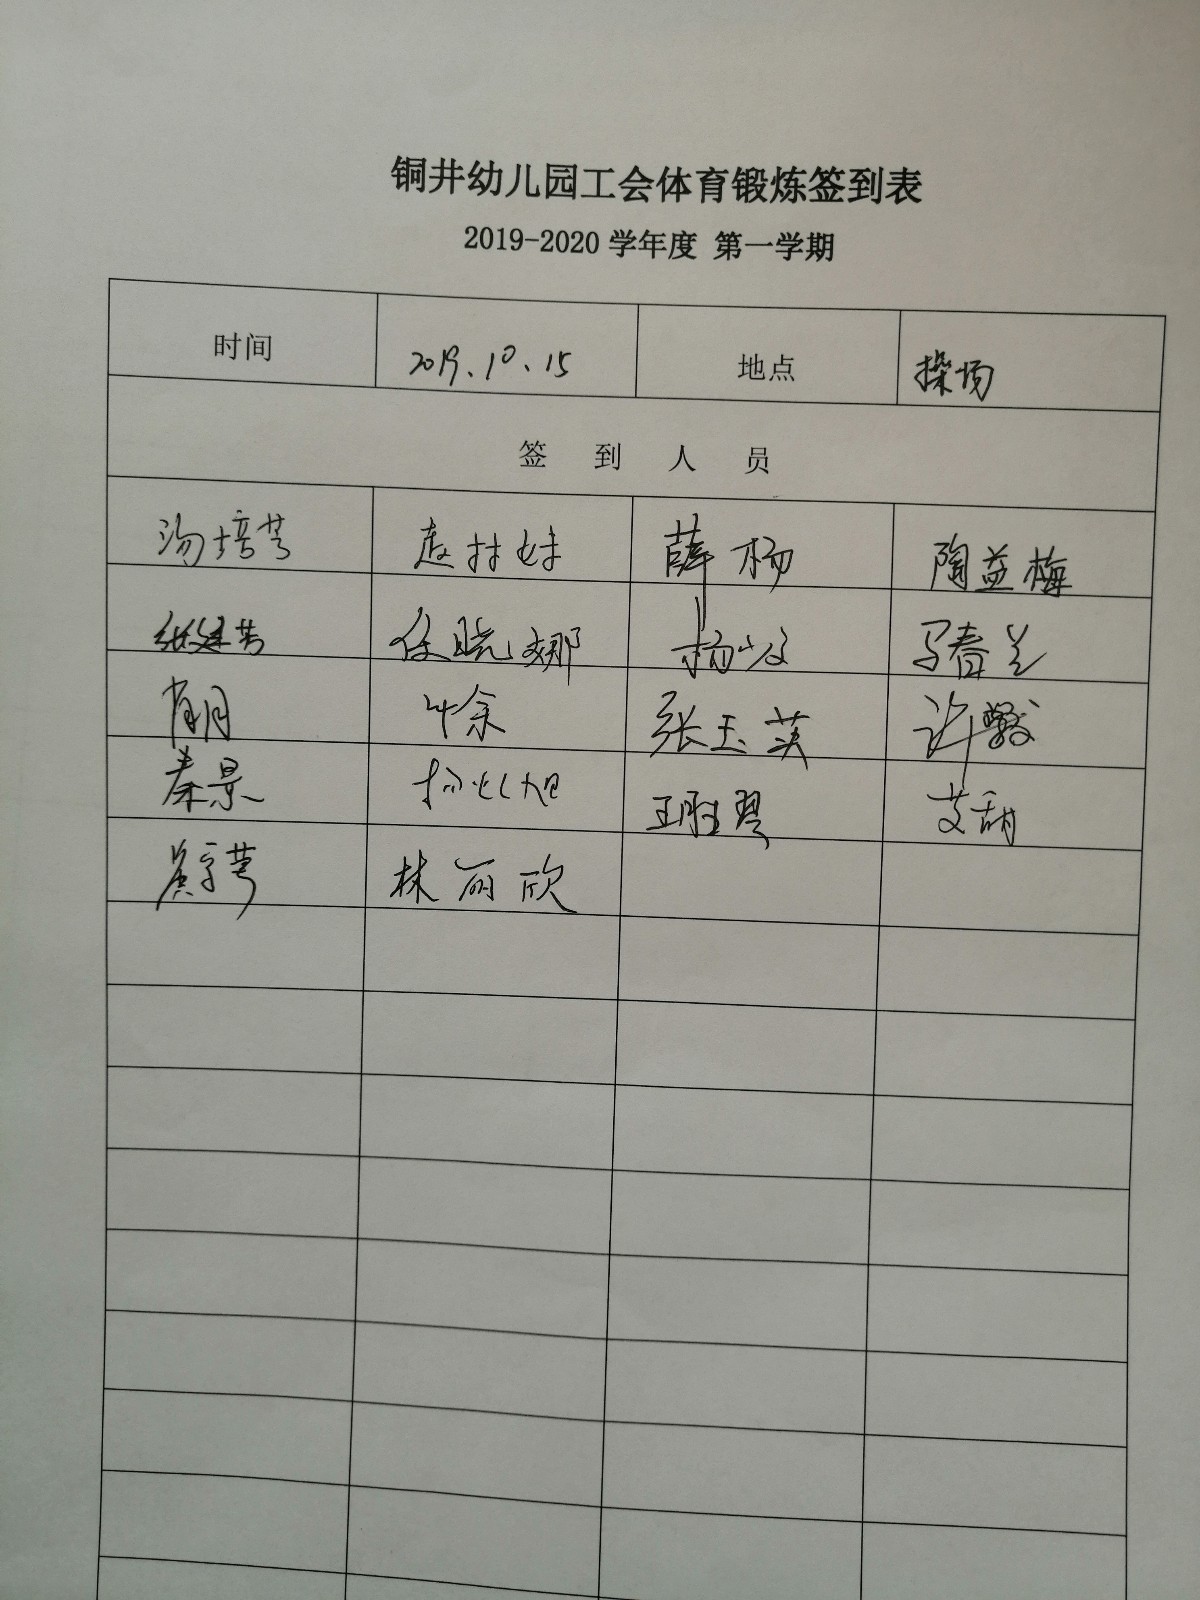 铜井幼儿园工会体育锻炼签到表
2019-2020 学年度 第一学期
时间 2019.10.15 地点 操场
签 到 人 员
汤培芳 赵村妹 薛杨 陶益梅
张建芳 任晓娜 马春兰
肖月 叶余 张玉英 许
秦景 王胜琴 艾甜
林丽欣